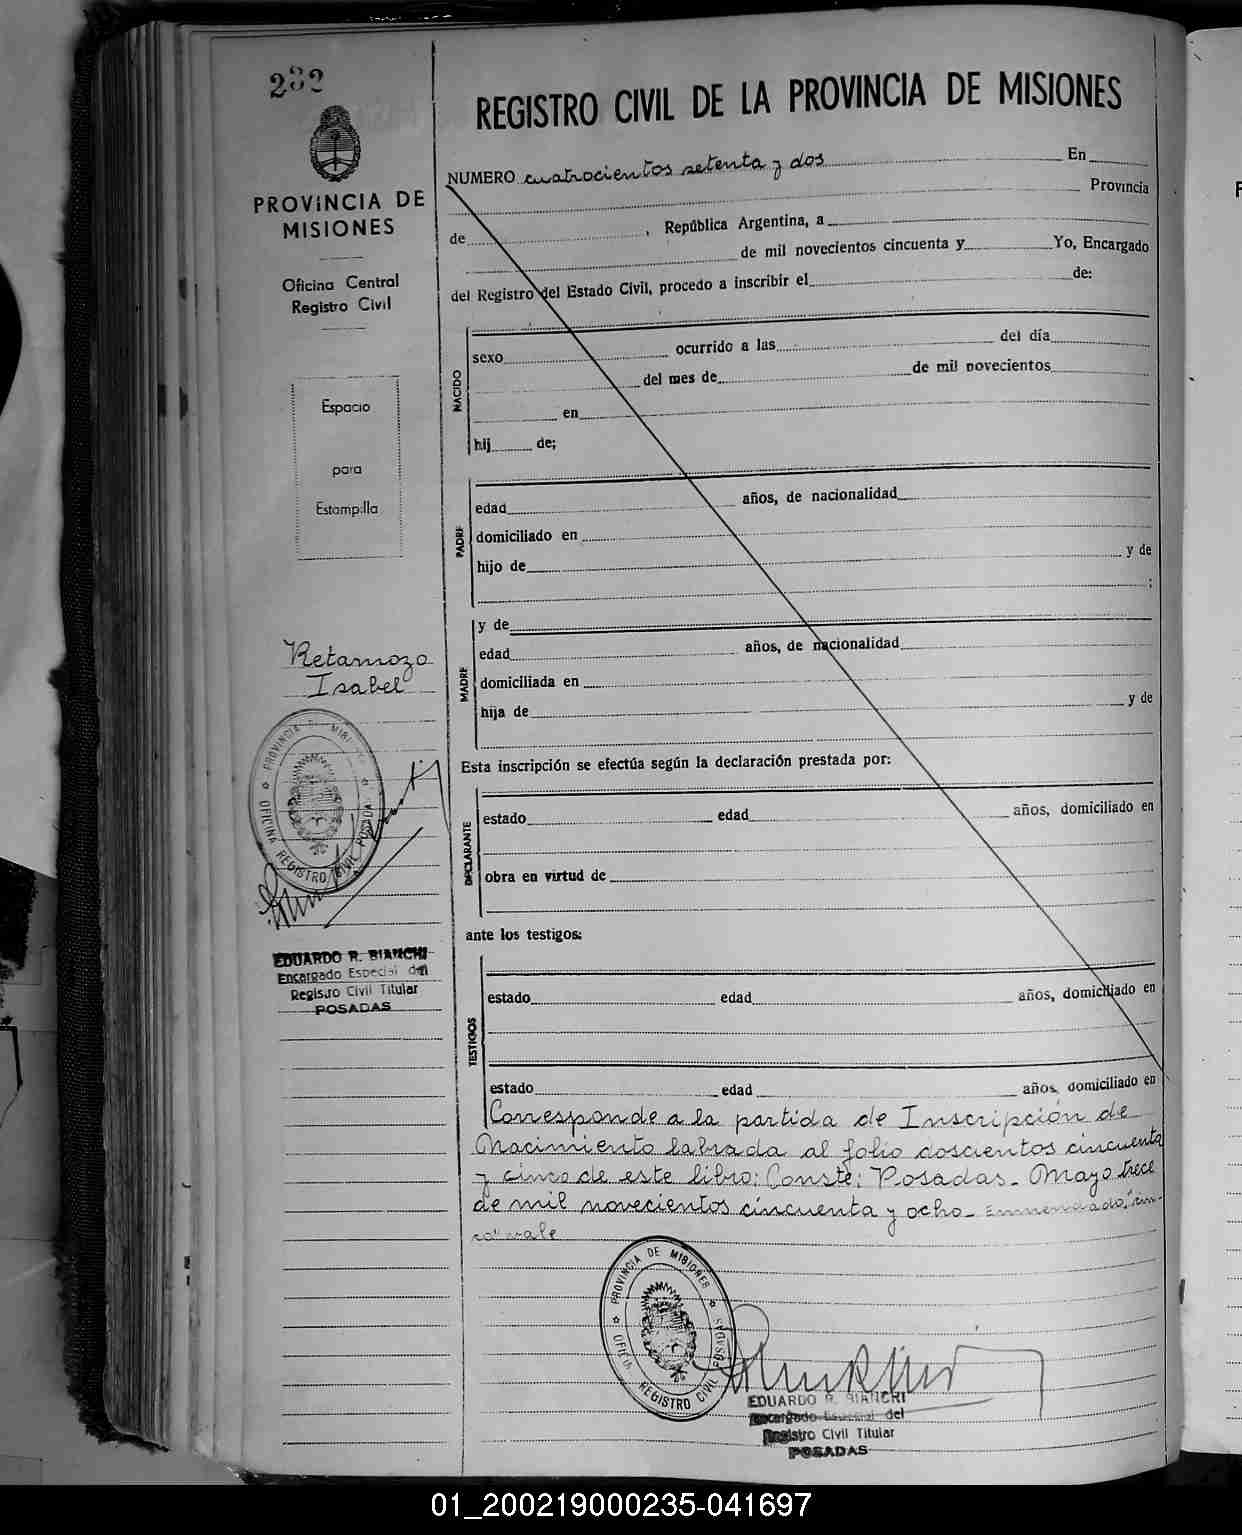 232
PROVINCIA DE
MISIONES
Oficina Central
Registro Civil
Espacio
para
Estampilla
Retamozo
Isabel
PROVINCIA DE MISIONES
OFICINA REGISTRO CIVIL POSADAS
EDUARDO R. BIANCHI
Encargado Especial del
Registro Civil Titular
POSADAS
REGISTRO CIVIL DE LA PROVINCIA DE MISIONES
NUMERO cuatrocientos setenta y dos En
Provincia
de , República Argentina, a
de mil novecientos cincuenta y Yo, Encargado
del Registro del Estado Civil, procedo a inscribir el de:
NACIDO
sexo ocurrido a las del día
del mes de de mil novecientos
en
hij de;
PADRE
edad años, de nacionalidad
domiciliado en
hijo de y de
;
MADRE
y de
edad años, de nacionalidad
domiciliada en
hija de y de
Esta inscripción se efectúa según la declaración prestada por:
DECLARANTE
estado edad años, domiciliado en
obra en virtud de
ante los testigos:
TESTIGOS
estado edad años, domiciliado en
estado edad años, domiciliado en
Corresponde a la partida de Inscripción de
Nacimiento labrada al folio doscientos cincuenta
y cinco de este libro: Conste: Posadas - Mayo trece
de mil novecientos cincuenta y ocho - Enmendado, "cin-
co" vale
PROVINCIA DE MISIONES
OFICINA REGISTRO CIVIL POSADAS
EDUARDO R. BIANCHI
Encargado Especial del
Registro Civil Titular
POSADAS
01_200219000235-041697